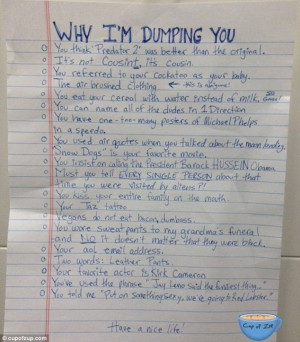 WHY I'M DUMPING YOU
You think "Predator 2" was better than the original.
It's not Cousint, it's cousin.
You referred to your Cockatoo as your baby.
The air brushed clothing. ← this is a biggie!
You eat your cereal with water instead of milk. Gross!
You can name all of the dudes in 1 Direction
You have one-too-many posters of Michael Phelps
in a speedo.
You used air quotes when you talked about the moon landing
"Snow Dogs" is your favorite movie.
You insist on calling the President Barack HUSSEIN Obama
Must you tell EVERY SINGLE PERSON about that
time you were visited by aliens?!
You kiss your entire family on the mouth.
Your Taz tattoo
Vegans do not eat bacon, dumbass.
You wore sweatpants to my grandma's funeral
and NO it doesn't matter that they were black.
Your aol email address.
Two words: Leather Pants.
Your favorite actor is Kirk Cameron
You've used the phrase "Jay Leno said the funniest thing..."
You told me "Put on something sexy, we're going to Red Lobster."
Have a nice life!
Cup of Zup
© cupofzup.com